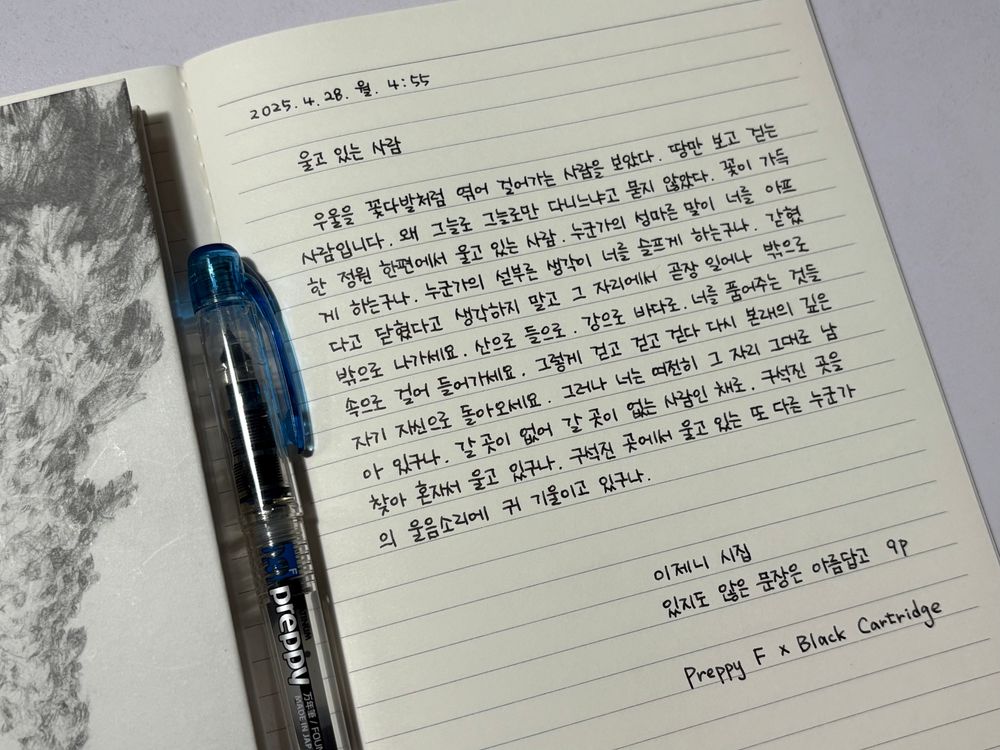 2025. 4. 28. 월. 4:55
울고 있는 사람
우울을 꽃다발처럼 엮어 걸어가는 사람을 보았다. 땅만 보고 걷는
사람입니다. 왜 그늘로 그늘로만 다니느냐고 묻지 않았다. 꽃이 가득
한 정원 한편에서 울고 있는 사람. 누군가의 성마른 말이 너를 아프
게 하는구나. 누군가의 섣부른 생각이 너를 슬프게 하는구나. 갇혔
다고 닫혔다고 생각하지 말고 그 자리에서 곧장 일어나 밖으로
밖으로 나가세요. 산으로 들으로. 강으로 바다로. 너를 품어주는 것들
속으로 걸어 들어가세요. 그렇게 걷고 걷고 걷다 다시 본래의 깊은
자기 자신으로 돌아오세요. 그러나 너는 여전히 그 자리 그대로 남
아 있구나. 갈 곳이 없어 갈 곳이 없는 사람인 채로. 구석진 곳을
찾아 혼자서 울고 있구나. 구석진 곳에서 울고 있는 또 다른 누군가
의 울음소리에 귀 기울이고 있구나.
이제니 시집
있지도 않은 문장은 아름답고 9p
Preppy F x Black Cartridge
preppy
万年筆 / FOUN
MADE IN JAP